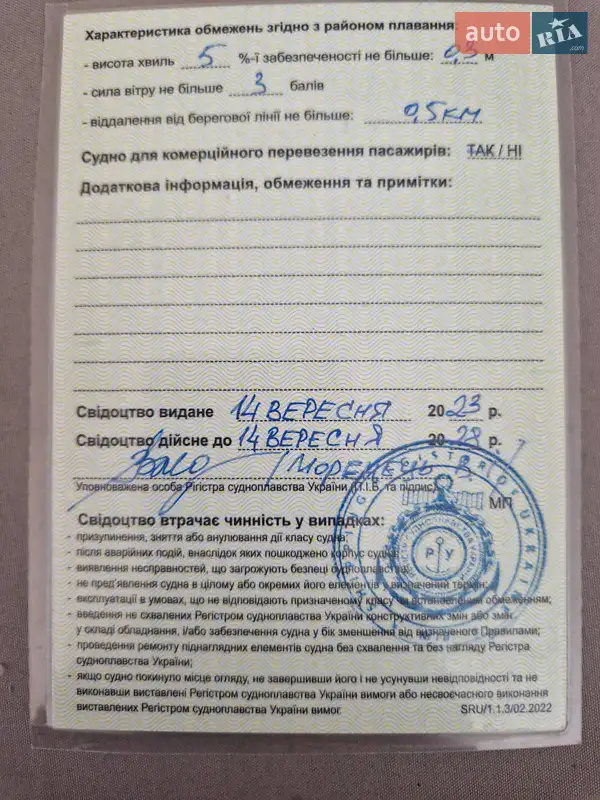 auto RIA .com
Характеристика обмежень згідно з районом плавання:
- висота хвиль 5 %-ї забезпеченості не більше: 0,3 м
- сила вітру не більше 3 балів
- віддалення від берегової лінії не більше: 0,5 км
Судно для комерційного перевезення пасажирів: ТАК / НІ
Додаткова інформація, обмеження та примітки:
Свідоцтво видане 14 ВЕРЕСНЯ 2023 р.
Свідоцтво дійсне до 14 ВЕРЕСНЯ 2028 р.
Уповноважена особа Регістра судноплавства України (П.І.Б. та підпис)
МП
Свідоцтво втрачає чинність у випадках:
- призупинення, зняття або анулювання дії класу судна;
- після аварійних подій, внаслідок яких пошкоджено корпус судна;
- виявлення несправностей, що загрожують безпеці судноплавства;
- не пред'явлення судна в цілому або окремих його елементів у визначений термін;
- експлуатації в умовах, що не відповідають призначеному класу чи встановленим обмеженням;
- введення не схвалених Регістром судноплавства України конструктивних змін або змін
у складі обладнання, і/або забезпечення судна у бік зменшення від визначеного Правилами;
- проведення ремонту піднаглядних елементів судна без схвалення та без нагляду Регістра
судноплавства України;
- якщо судно покинуло місце огляду, не завершивши його і не усунувши невідповідності та не
виконавши виставлені Регістром судноплавства України вимоги або несвоєчасного виконання
виставлених Регістром судноплавства України вимог.
SRU/1.1.3/02.2022